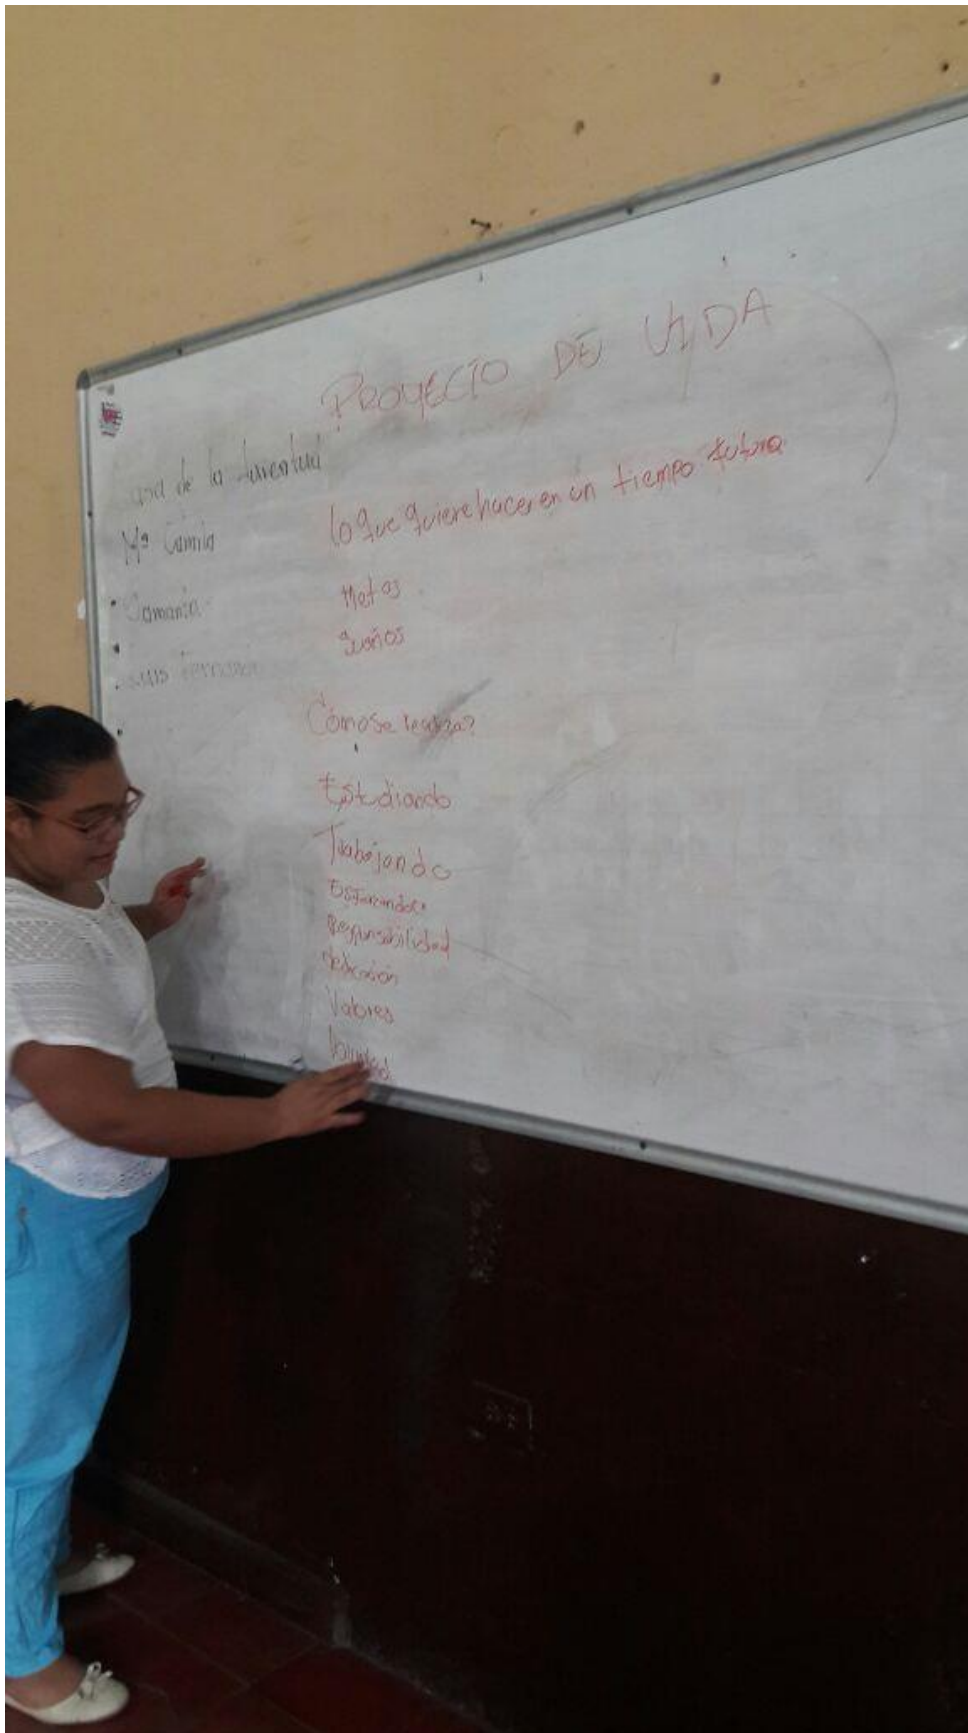 PROYECTO DE VIDA
de la Juventud
Mª Camila
lo que quiere hacer en un tiempo futuro
Metas
Sueños
Luis
Cómo se realiza?
Estudiando
Trabajando
Esforzandose
Responsabilidad
dedicación
Valores